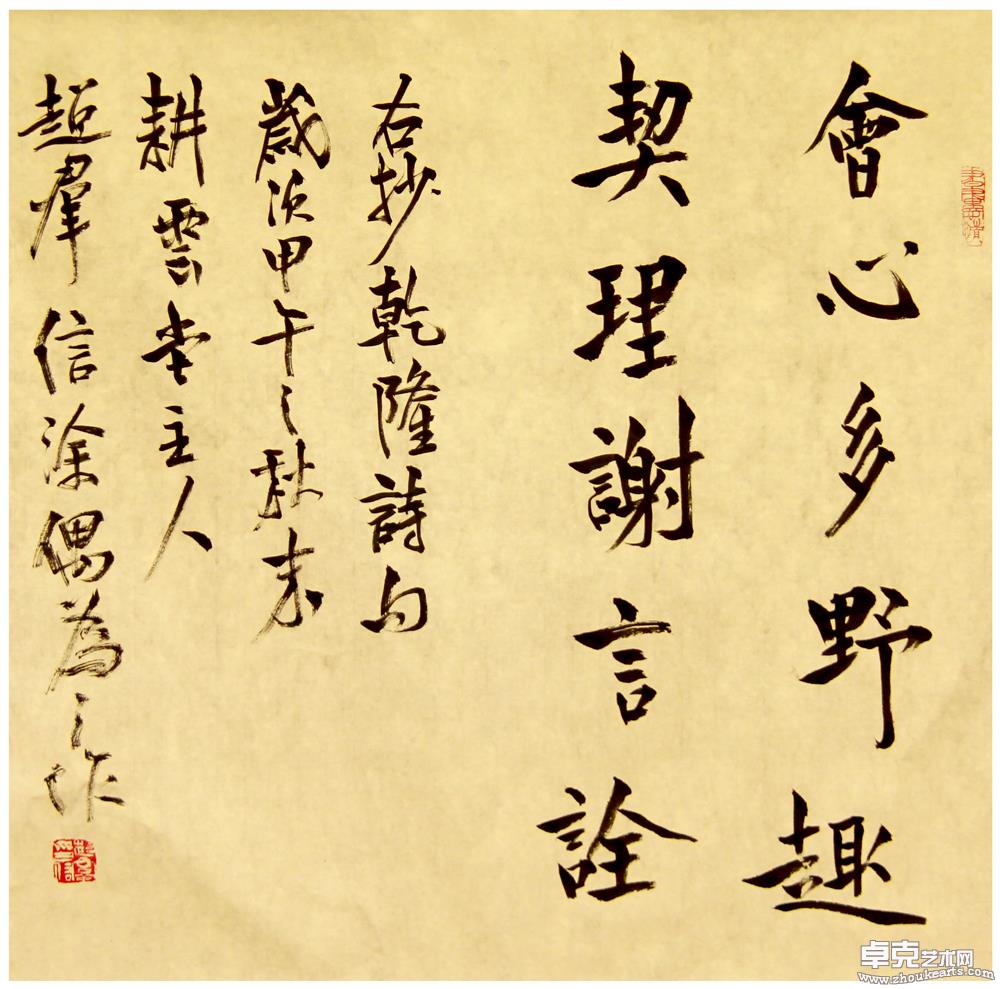 會心多野趣
契理謝言詮
右抄乾隆詩句
歲次甲午之秋末
耕雲堂主人
超羣信塗偶為之作
卓克艺术网
www.zhoukearts.com